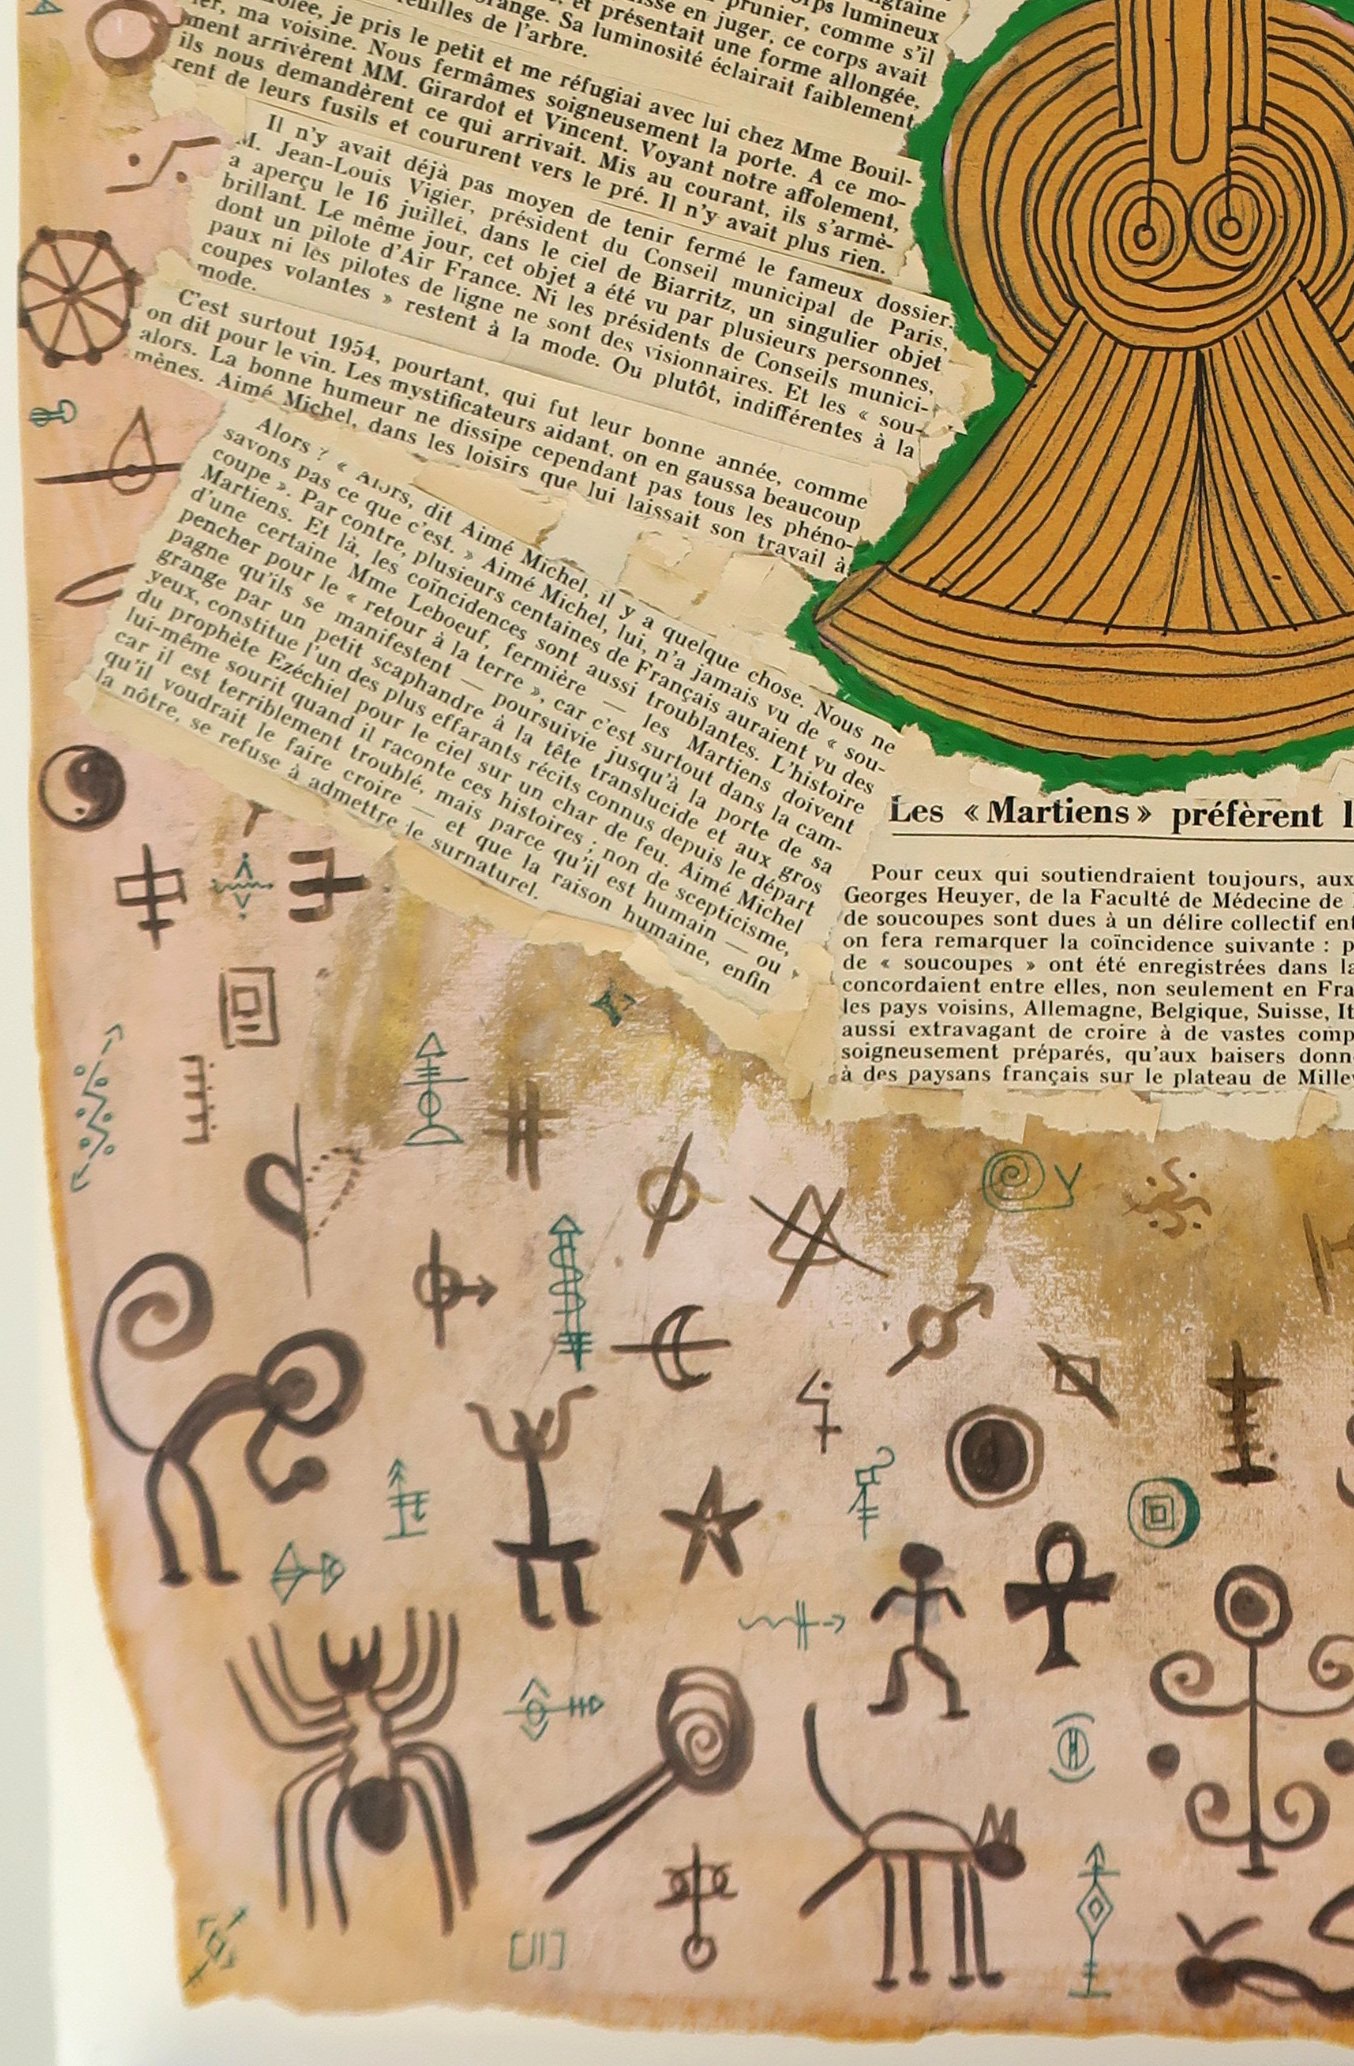 ingtaine
corps lumineux
prunier, comme s'il
isse en juger, ce corps avait
et présentait une forme allongée,
orange. Sa luminosité éclairait faiblement
feuilles de l'arbre.
je pris le petit et me réfugiai avec lui chez Mme Bouil-
ier, ma voisine. Nous fermâmes soigneusement la porte. A ce mo-
ment arrivèrent MM. Girardot et Vincent. Voyant notre affolement,
ils nous demandèrent ce qui arrivait. Mis au courant, ils s'armè-
rent de leurs fusils et coururent vers le pré. Il n'y avait plus rien.
Il n'y avait déjà pas moyen de tenir fermé le fameux dossier.
M. Jean-Louis Vigier, président du Conseil municipal de Paris,
a aperçu le 16 juillet, dans le ciel de Biarritz, un singulier objet
brillant. Le même jour, cet objet a été vu par plusieurs personnes,
dont un pilote d'Air France. Ni les présidents de Conseils munici-
paux ni les pilotes de ligne ne sont des visionnaires. Et les « sou-
coupes volantes » restent à la mode. Ou plutôt, indifférentes à la
mode.
C'est surtout 1954, pourtant, qui fut leur bonne année, comme
on dit pour le vin. Les mystificateurs aidant, on en gaussa beaucoup
alors. La bonne humeur ne dissipe cependant pas tous les phéno-
mènes. Aimé Michel, dans les loisirs que lui laissait son travail à
Alors ? « Alors, dit Aimé Michel, il y a quelque chose. Nous ne
savons pas ce que c'est. » Aimé Michel, lui, n'a jamais vu de « sou-
coupe ». Par contre, plusieurs centaines de Français auraient vu des
Martiens. Et là, les coïncidences sont aussi troublantes. L'histoire
d'une certaine Mme Leboeuf, fermière — les Martiens doivent
pencher pour le « retour à la terre », car c'est surtout dans la cam-
pagne qu'ils se manifestent — poursuivie jusqu'à la porte de sa
grange par un petit scaphandre à la tête translucide et aux gros
yeux, constitue l'un des plus effarants récits connus depuis le départ
du prophète Ezéchiel pour le ciel sur un char de feu. Aimé Michel
lui-même sourit quand il raconte ces histoires ; non de scepticisme,
car il est terriblement troublé, mais parce qu'il est humain — ou
qu'il voudrait le faire croire — et que la raison humaine, enfin
la nôtre, se refuse à admettre le surnaturel.
Les « Martiens » préfèrent l
Pour ceux qui soutiendraient toujours, aux
Georges Heuyer, de la Faculté de Médecine de
de soucoupes sont dues à un délire collectif ent
on fera remarquer la coïncidence suivante : p
de « soucoupes » ont été enregistrées dans la
concordaient entre elles, non seulement en Fra
les pays voisins, Allemagne, Belgique, Suisse, It
aussi extravagant de croire à de vastes comp
soigneusement préparés, qu'aux baisers donn
à des paysans français sur le plateau de Millev